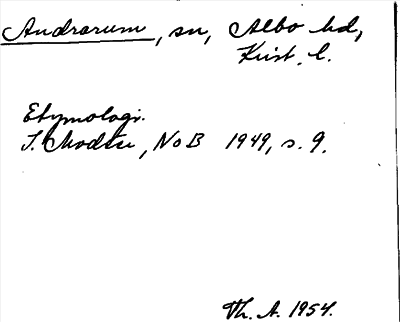 Andrarum, sn, Albo hd,
Krist. l.
Etymologi.
I. Modéer, NoB 1949, s. 9.
Th. A. 1954.